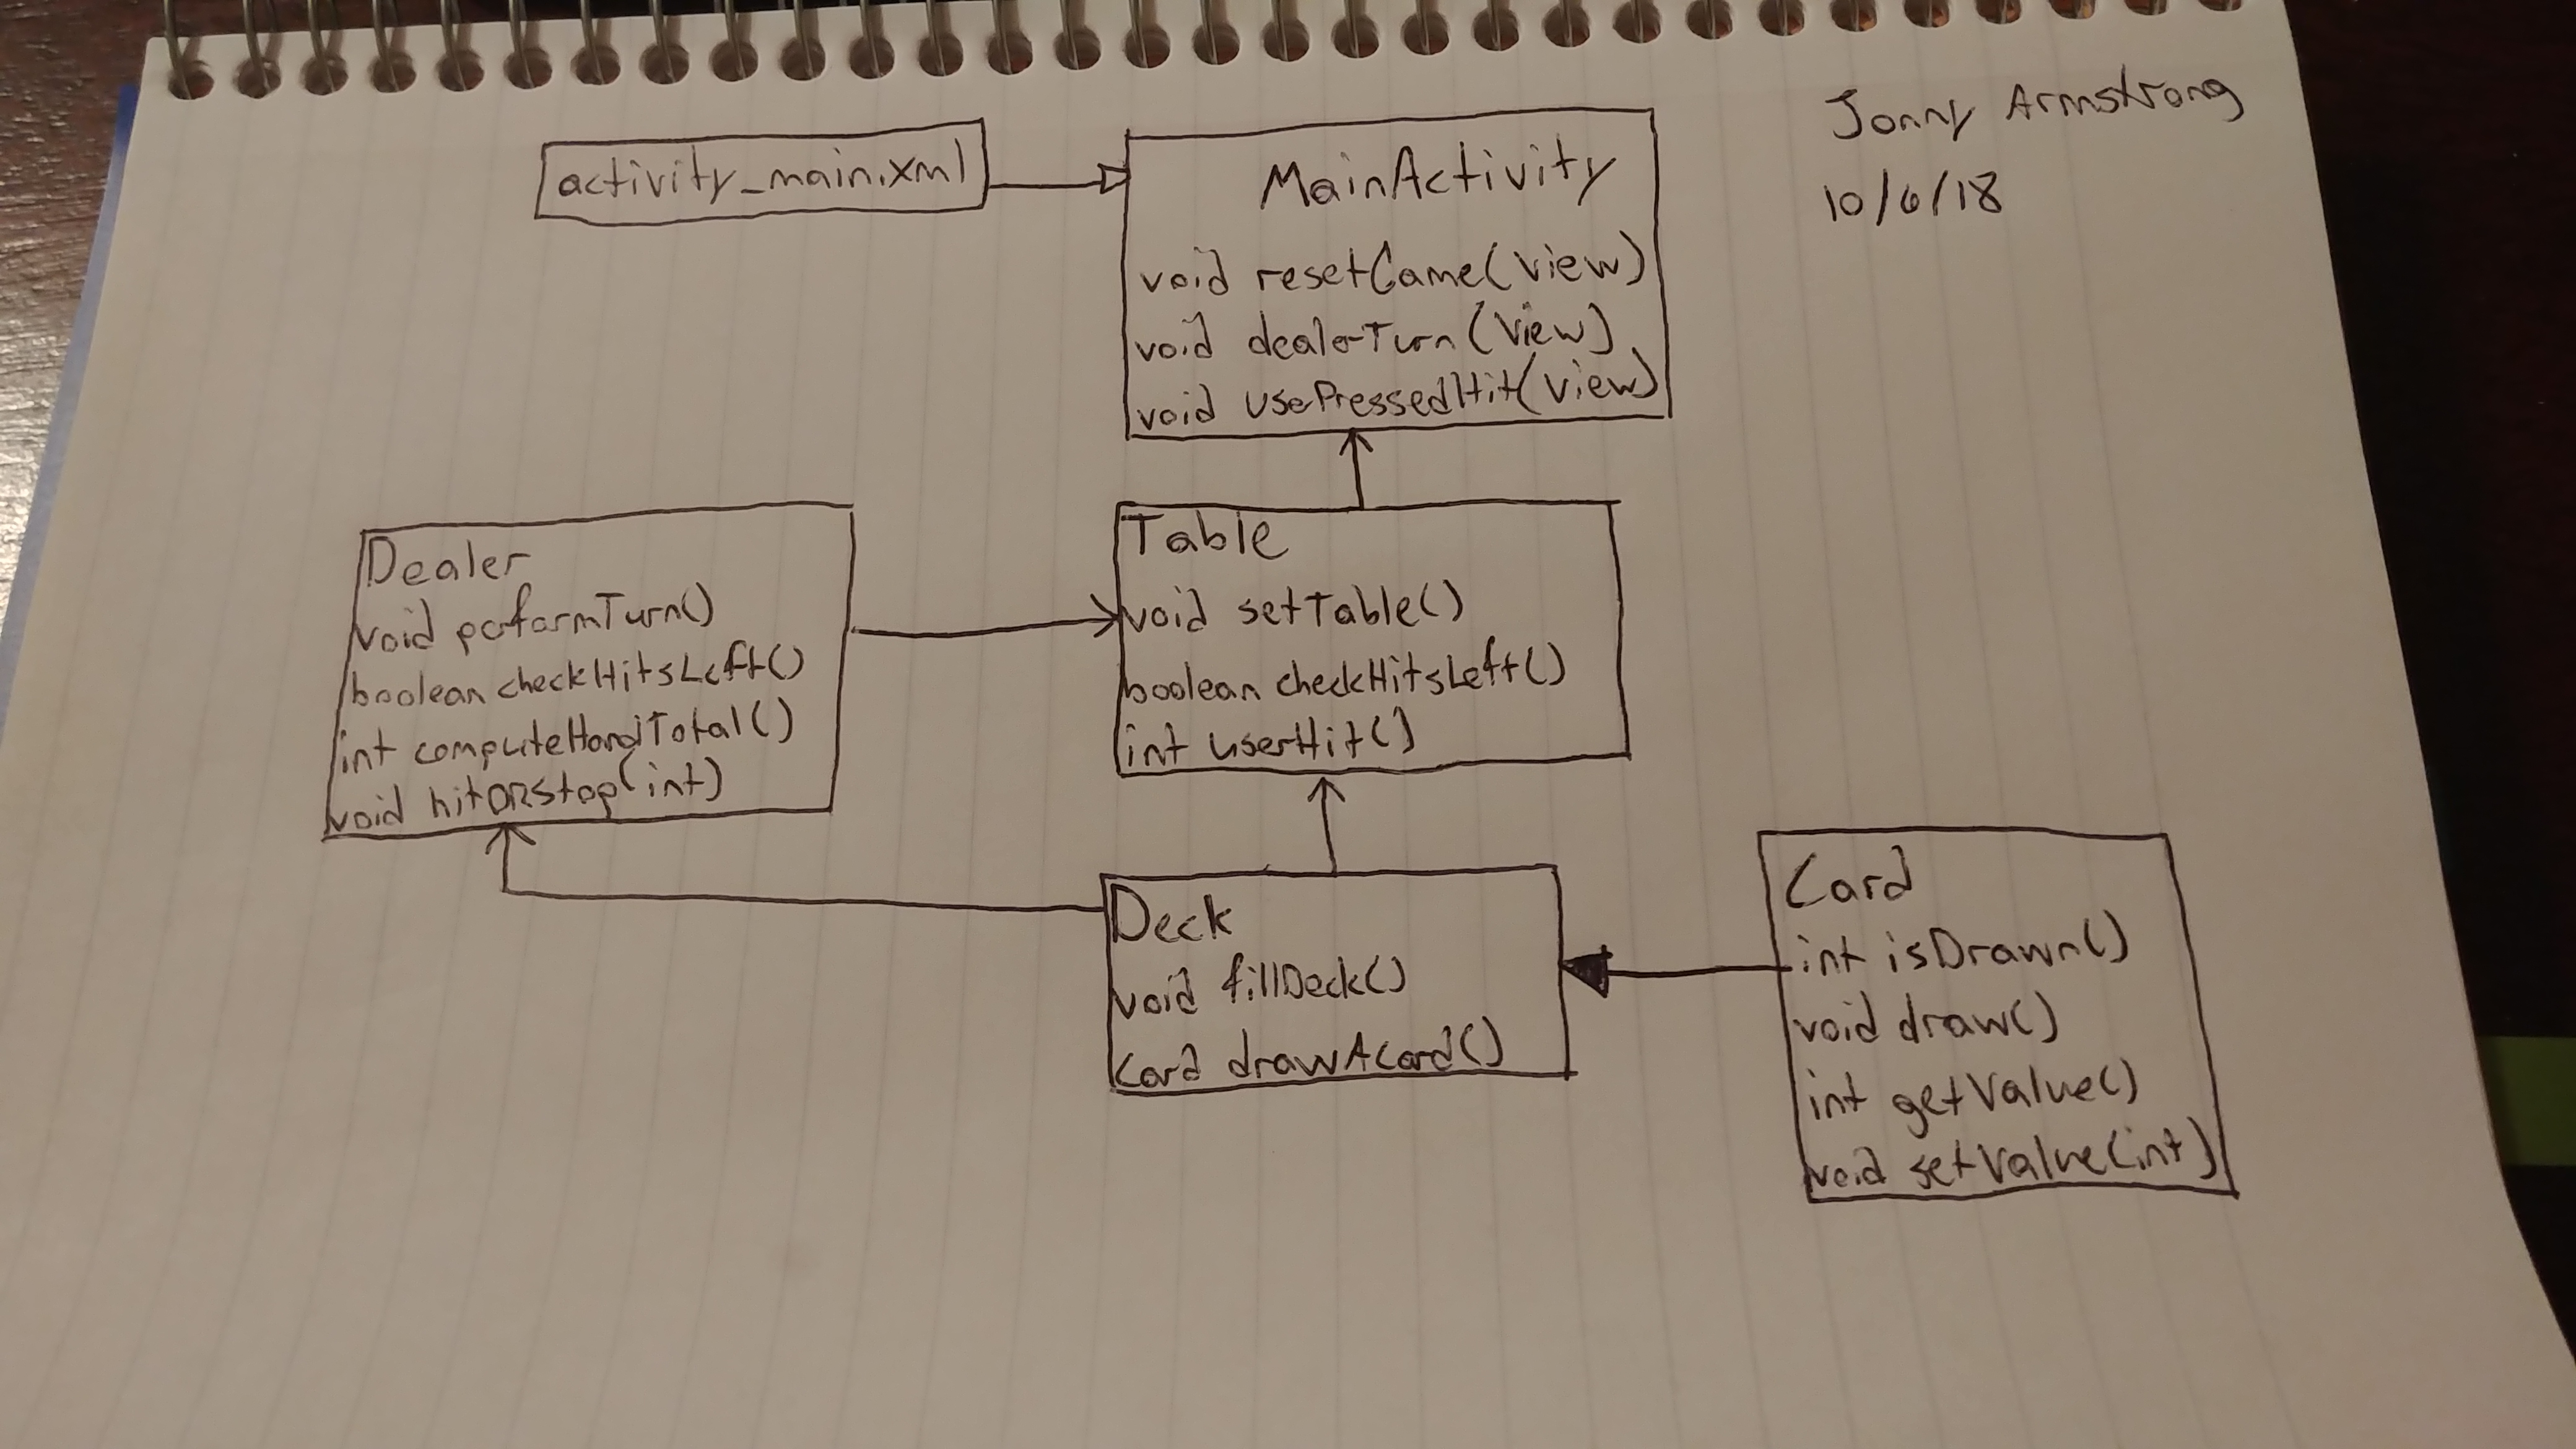 Jonny Armstrong
10/6/18
activity_main.xml
MainActivity
void resetGame(View)
void dealerTurn(View)
void usePressedHit(View)
Dealer
void performTurn()
boolean checkHitsLeft()
int computeHandTotal()
void hitORStop(int)
Table
void setTable()
boolean checkHitsLeft()
int userHit()
Deck
void fillDeck()
Card drawACard()
Card
int isDrawn()
void draw()
int getValue()
void setValue(int)